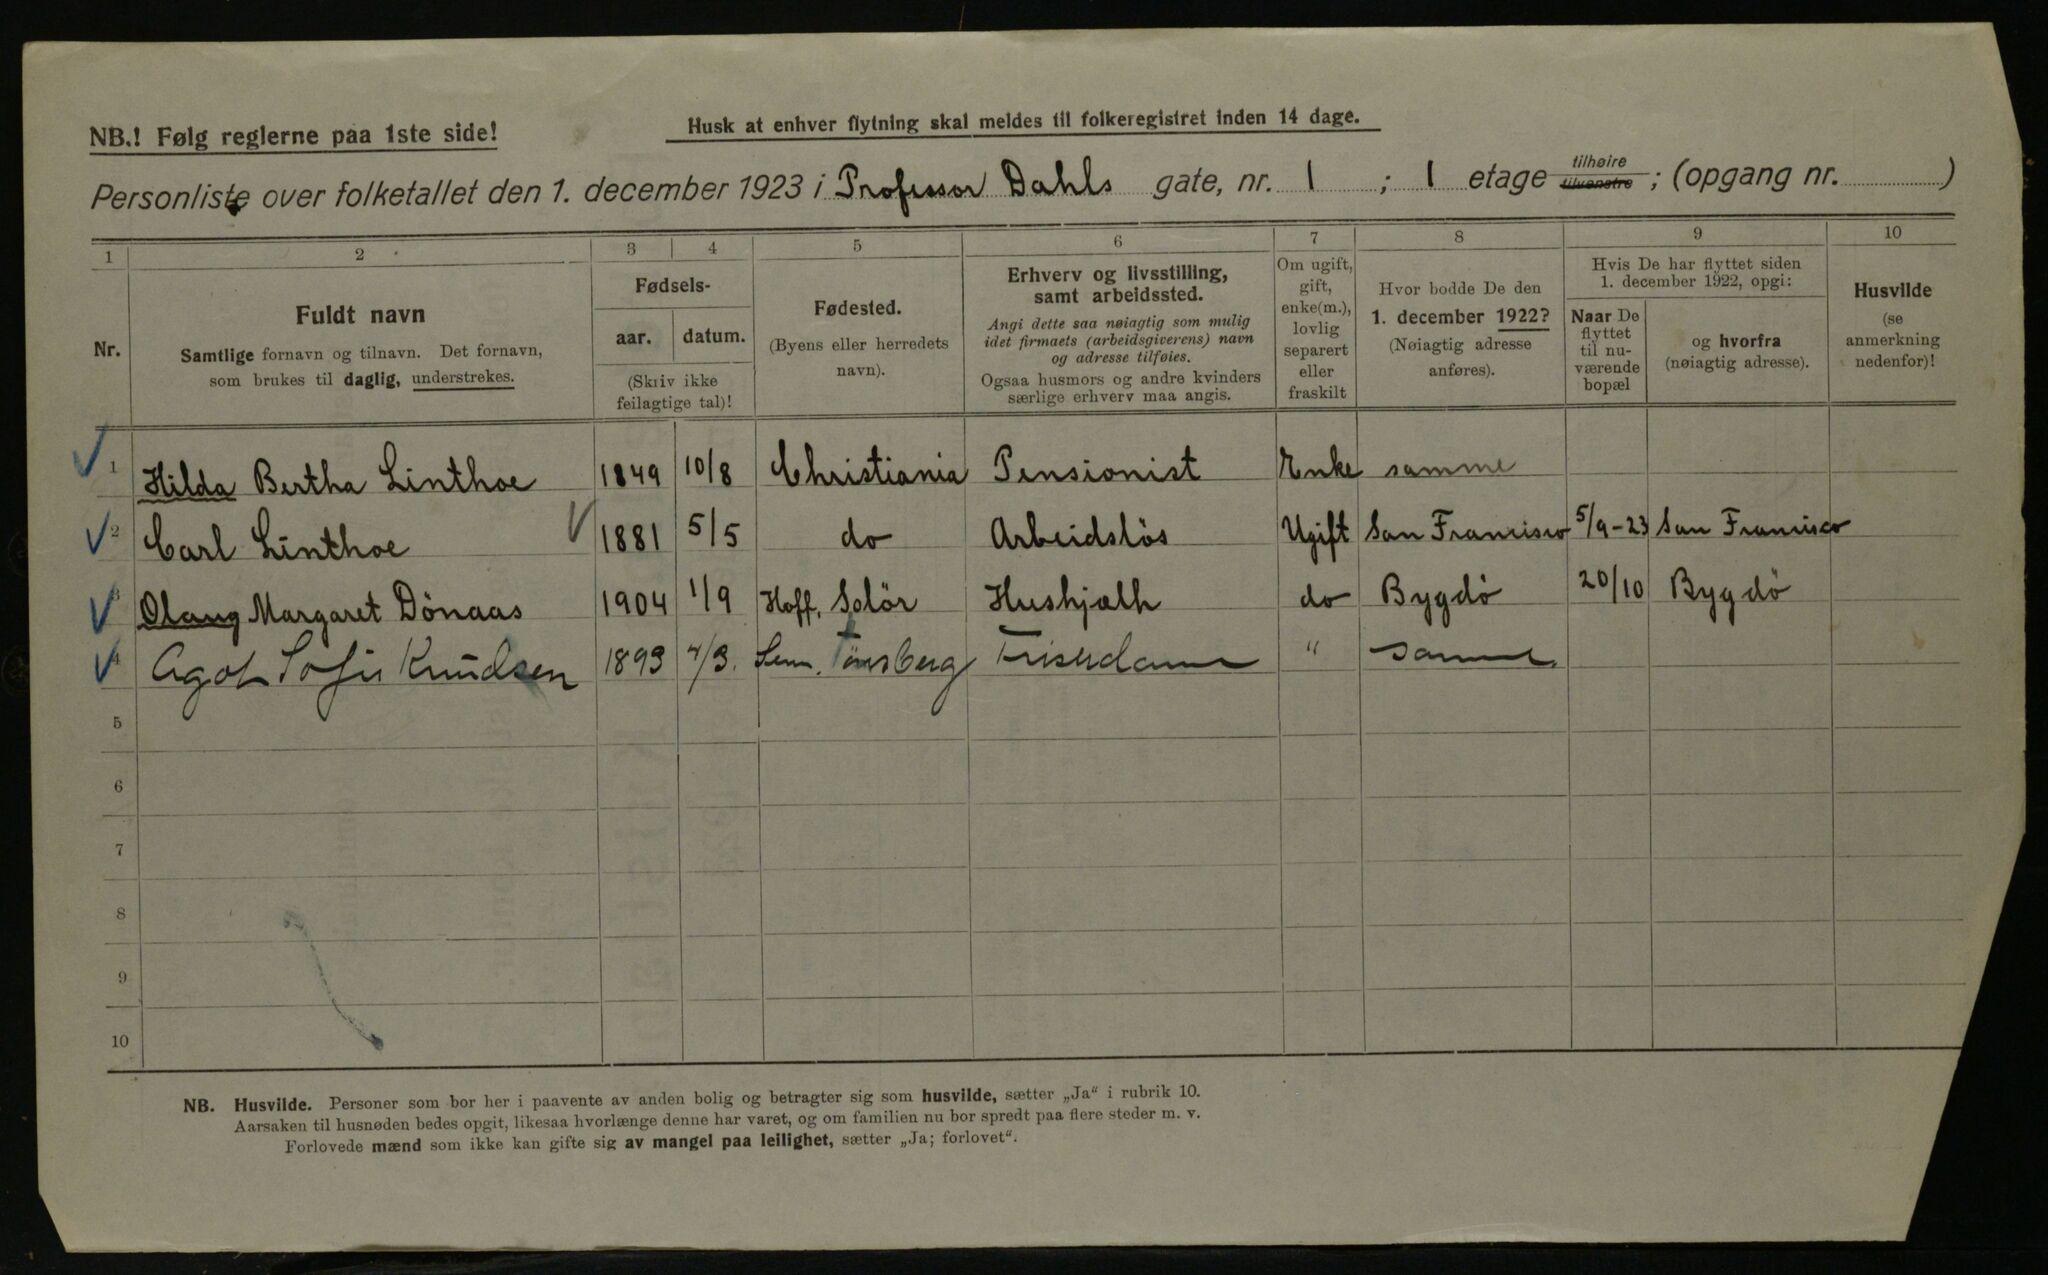 NB.! Følg reglerne paa 1ste side!
Husk at enhver flytning skal meldes til folkeregistret inden 14 dage.
Personliste over folketallet den 1. december 1923 i Professor Dahls gate, nr. 1 ; 1 etage tilhøire tilvenstre ; (opgang nr. )
1 2 3 4 5 6 7 8 9 10
Nr.
Fuldt navn
Samtlige fornavn og tilnavn. Det fornavn,
som brukes til daglig, understrekes.
Fødsels-
aar. datum.
(Skriv ikke
feilagtige tal)!
Fødested.
(Byens eller herredets
navn).
Erhverv og livsstilling,
samt arbeidssted.
Angi dette saa nøiagtig som mulig
idet firmaets (arbeidsgiverens) navn
og adresse tilføies.
Ogsaa husmors og andre kvinders
særlige erhverv maa angis.
Om ugift,
gift,
enke(m.),
lovlig
separert
eller
fraskilt
Hvor bodde De den
1. december 1922?
(Nøiagtig adresse
anføres).
Hvis De har flyttet siden
1. december 1922, opgi:
Naar De
flyttet
til nu-
værende
bopæl
og hvorfra
(nøiagtig adresse).
Husvilde
(se
anmerkning
nedenfor)!
1 Hilda Bertha Linthoe 1849 10/8 Christiania Pensionist Enke samme
2 Carl Linthoe 1881 5/5 do Arbeidsløs Ugift San Francisco 5/9-23 San Francisco
3 Olaug Margaret Dönaas 1904 1/9 Hoff, Solör Hushjælh do Bygdö 20/10 Bygdö
4 Agot Sofie Knudsen 1893 /3. Sem. Tönsberg Friserdame " samme
5
6
7
8
9
10
NB. Husvilde. Personer som bor her i paavente av anden bolig og betragter sig som husvilde, sætter „Ja“ i rubrik 10.
Aarsaken til husnøden bedes opgit, likesaa hvorlænge denne har varet, og om familien nu bor spredt paa flere steder m. v.
Forlovede mænd som ikke kan gifte sig av mangel paa leilighet, sætter „Ja; forlovet“.